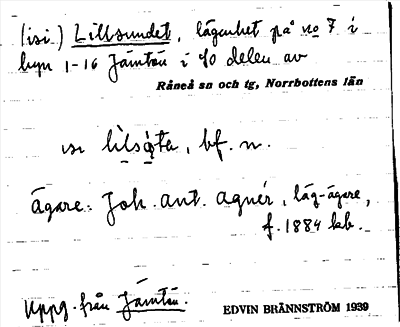 (isi) Lillsundet, lägenhet på no 7 i
byn 1-16 Jämtön i SO delen av
Råneå sn och tg, Norrbottens län
isi lilsọ́ta, bf. n.
Ägare: Joh. Ant. Agnér, läg-ägare,
f. 1884 kb.
Uppg. från Jämtön.
EDVIN BRÄNNSTRÖM 1939